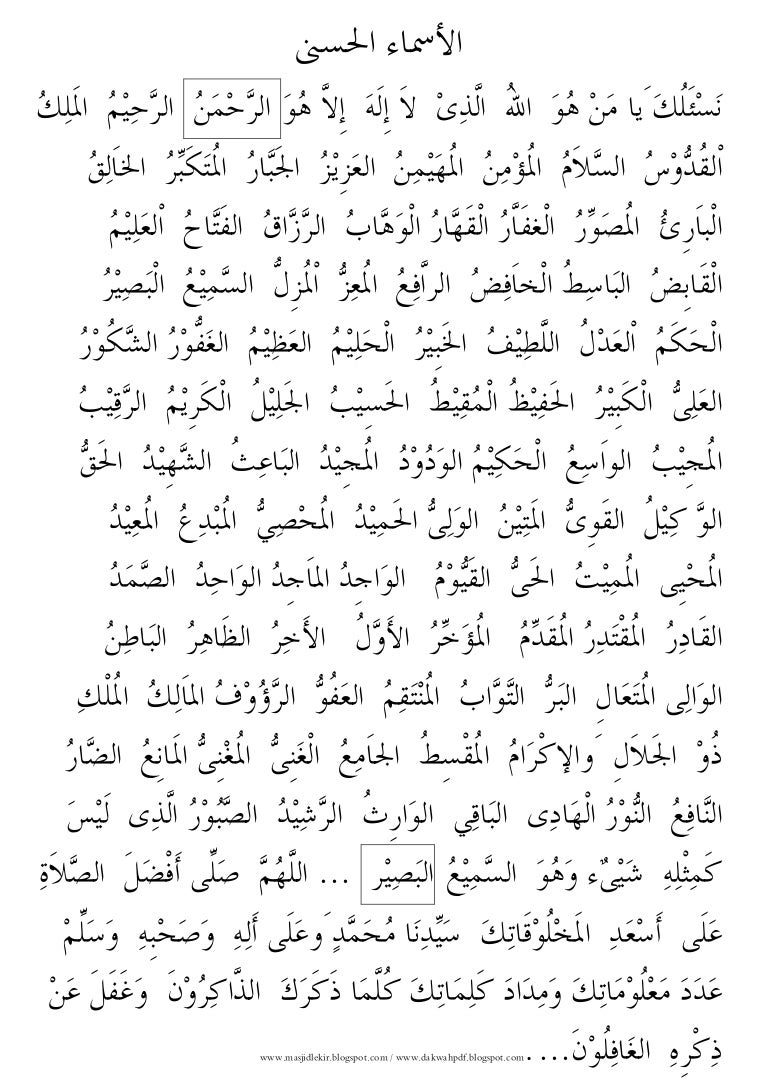 الأسماء الحسنى
نَسْئَلُكَ يَا مَنْ هُوَ اللهُ الَّذِىْ لاَ إِلَهَ إِلاَّ هُوَ الرَّحْمَنُ الرَّحِيْمُ المَلِكُ
اْلقُدُّوْسُ السَّلاَمُ المُؤْمِنُ المُهَيْمِنُ العَزِيْزُ الجَبَّارُ المُتَكَبِّرُ الخَالِقُ
الْبَارِئُ المُصَوِّرُ الْغفَّارُ الْقَهَّارُ الْوَهَّابُ الرَّزَّاقُ الفَتَّاحُ اْلعَلِيْمُ
الْقَابِضُ البَاسِطُ الْخاَفِضُ الراَّفِعُ المُعِزُّ اْلمُزِلُّ السَّمِيْعُ الْبَصِيْرُ
الْحَكَمُ اْلعَدْلُ اللَّطِيْفُ الخَبِيْرُ الْحَلِيْمُ العَظِيْمُ الغَفُّوْرُ الشَّكُوْرُ
العَلِىُّ الْكَبِيْرُ الحَفِيْظُ الْمُقِيْطُ الحَسِيْبُ الجَلِيْلُ الْكَرِيْمُ الرَّقِيْبُ
المُجِيْبُ الواَسِعُ الْحَكِيْمُ الوَدُوْدُ المُجِيْدُ البَاعِثُ الشَّهِيْدُ الحَقُّ
الوَّكِيْلُ القَوِىُّ المَتِيْنُ الوَلِىُّ الحَمِيْدُ المُحْصِيُّ المُبْدِعُ المُعِيْدُ
المُحْيِى المُمِيْتُ الحَىُّ القَيُّوْمُ الوَاجِدُ الماَجِدُ الوَاحِدُ الصَّمَدُ
القَادِرُ المُقْتَدِرُ المُقَدِّمُ المُؤَخِّرُ الأَوَّلُ الأَخِرُ الظَاهِرُ البَاطِنُ
الوَالِى المُتَعَالِ البَرُّ التَّوَّابُ المُنْتَقِمُ العَفُوُّ الرَّؤُوْفُ الماَلِكُ المُلْكِ
ذُوْ الجَلاَلِ وَالإكْرَامُ المُقْسِطُ الجاَمِعُ الْغَنِىُّ المُغْنِىُّ المَانِعُ الضَّارُ
النَّافِعُ النُّوْرُ الْهَادِى البَاقِي الوَارِثُ الرَّشِيْدُ الصَّبُوْرُ الَّذِى لَيْسَ
كَمِثْلِهِ شَيْىٌء وَهُوَ السَّمِيْعُ البَصِيْر ... اللَّهُمَّ صَلِّى أَفْضَلَ الصَّلاَةِ
عَلَى أَسْعَدِ المَخْلُوْقَاتِكَ سَيِّدِنَا مُحَمَّدٍ وَعَلَى أَلِهِ وَصَحْبِهِ وَسَلِّمْ
عَدَدَ مَعْلُوْمَاتِكَ وَمِدَادَ كَلِمَاتِكَ كُلَّمَا ذَكَرَكَ الذَّاكِرُوْنَ وَغَفَلَ عَنْ
ذِكْرِهِ الغَافِلُوْنَ....
www.masjidlekir.blogspot.com / www.dakwahpdf.blogspot.com